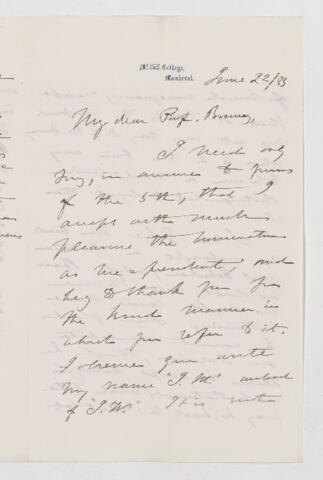 McGill College,
Montreal.
June 22/83
My dear Prof. Bonney,
I need only
say, in answer to yours
of the 5th, that I
accept with much
pleasure the nomination
as vice-president, and
beg to thank you for
the kind manner in
which you refer to it.
I observe you write
my name "J. M." instead
of "J. W."  It is not a